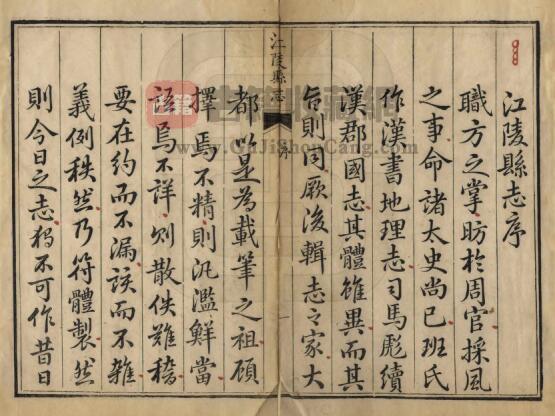 江陵縣志序
職方之掌昉於周官採風
之事命諸太史尚已班氏
作漢書地理志司馬彪續
漢郡國志其體雖異而其
旨則同厥後輯志之家大
江陵縣志
序
都以是為載筆之祖顧
擇焉不精則汎濫鮮當
語焉不詳則散佚難稽
要在約而不漏該而不雜
義例秩然乃符體製然
則今日之志猶不可作昔日
www.GuJiShouCang.com